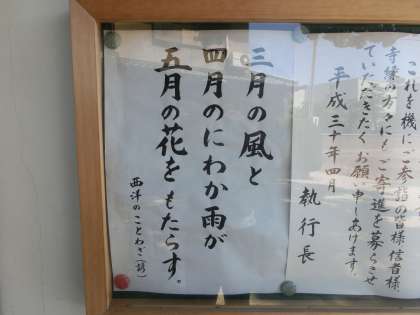 これを機にご参詣の皆様信者様
寺縁の方々にもご寄進を募らさせ
ていただきたくお願い申しあげます。
平成三十年四月
執行長
三月の風と
四月のにわか雨が
五月の花をもたらす。
西洋のことわざ(諺)